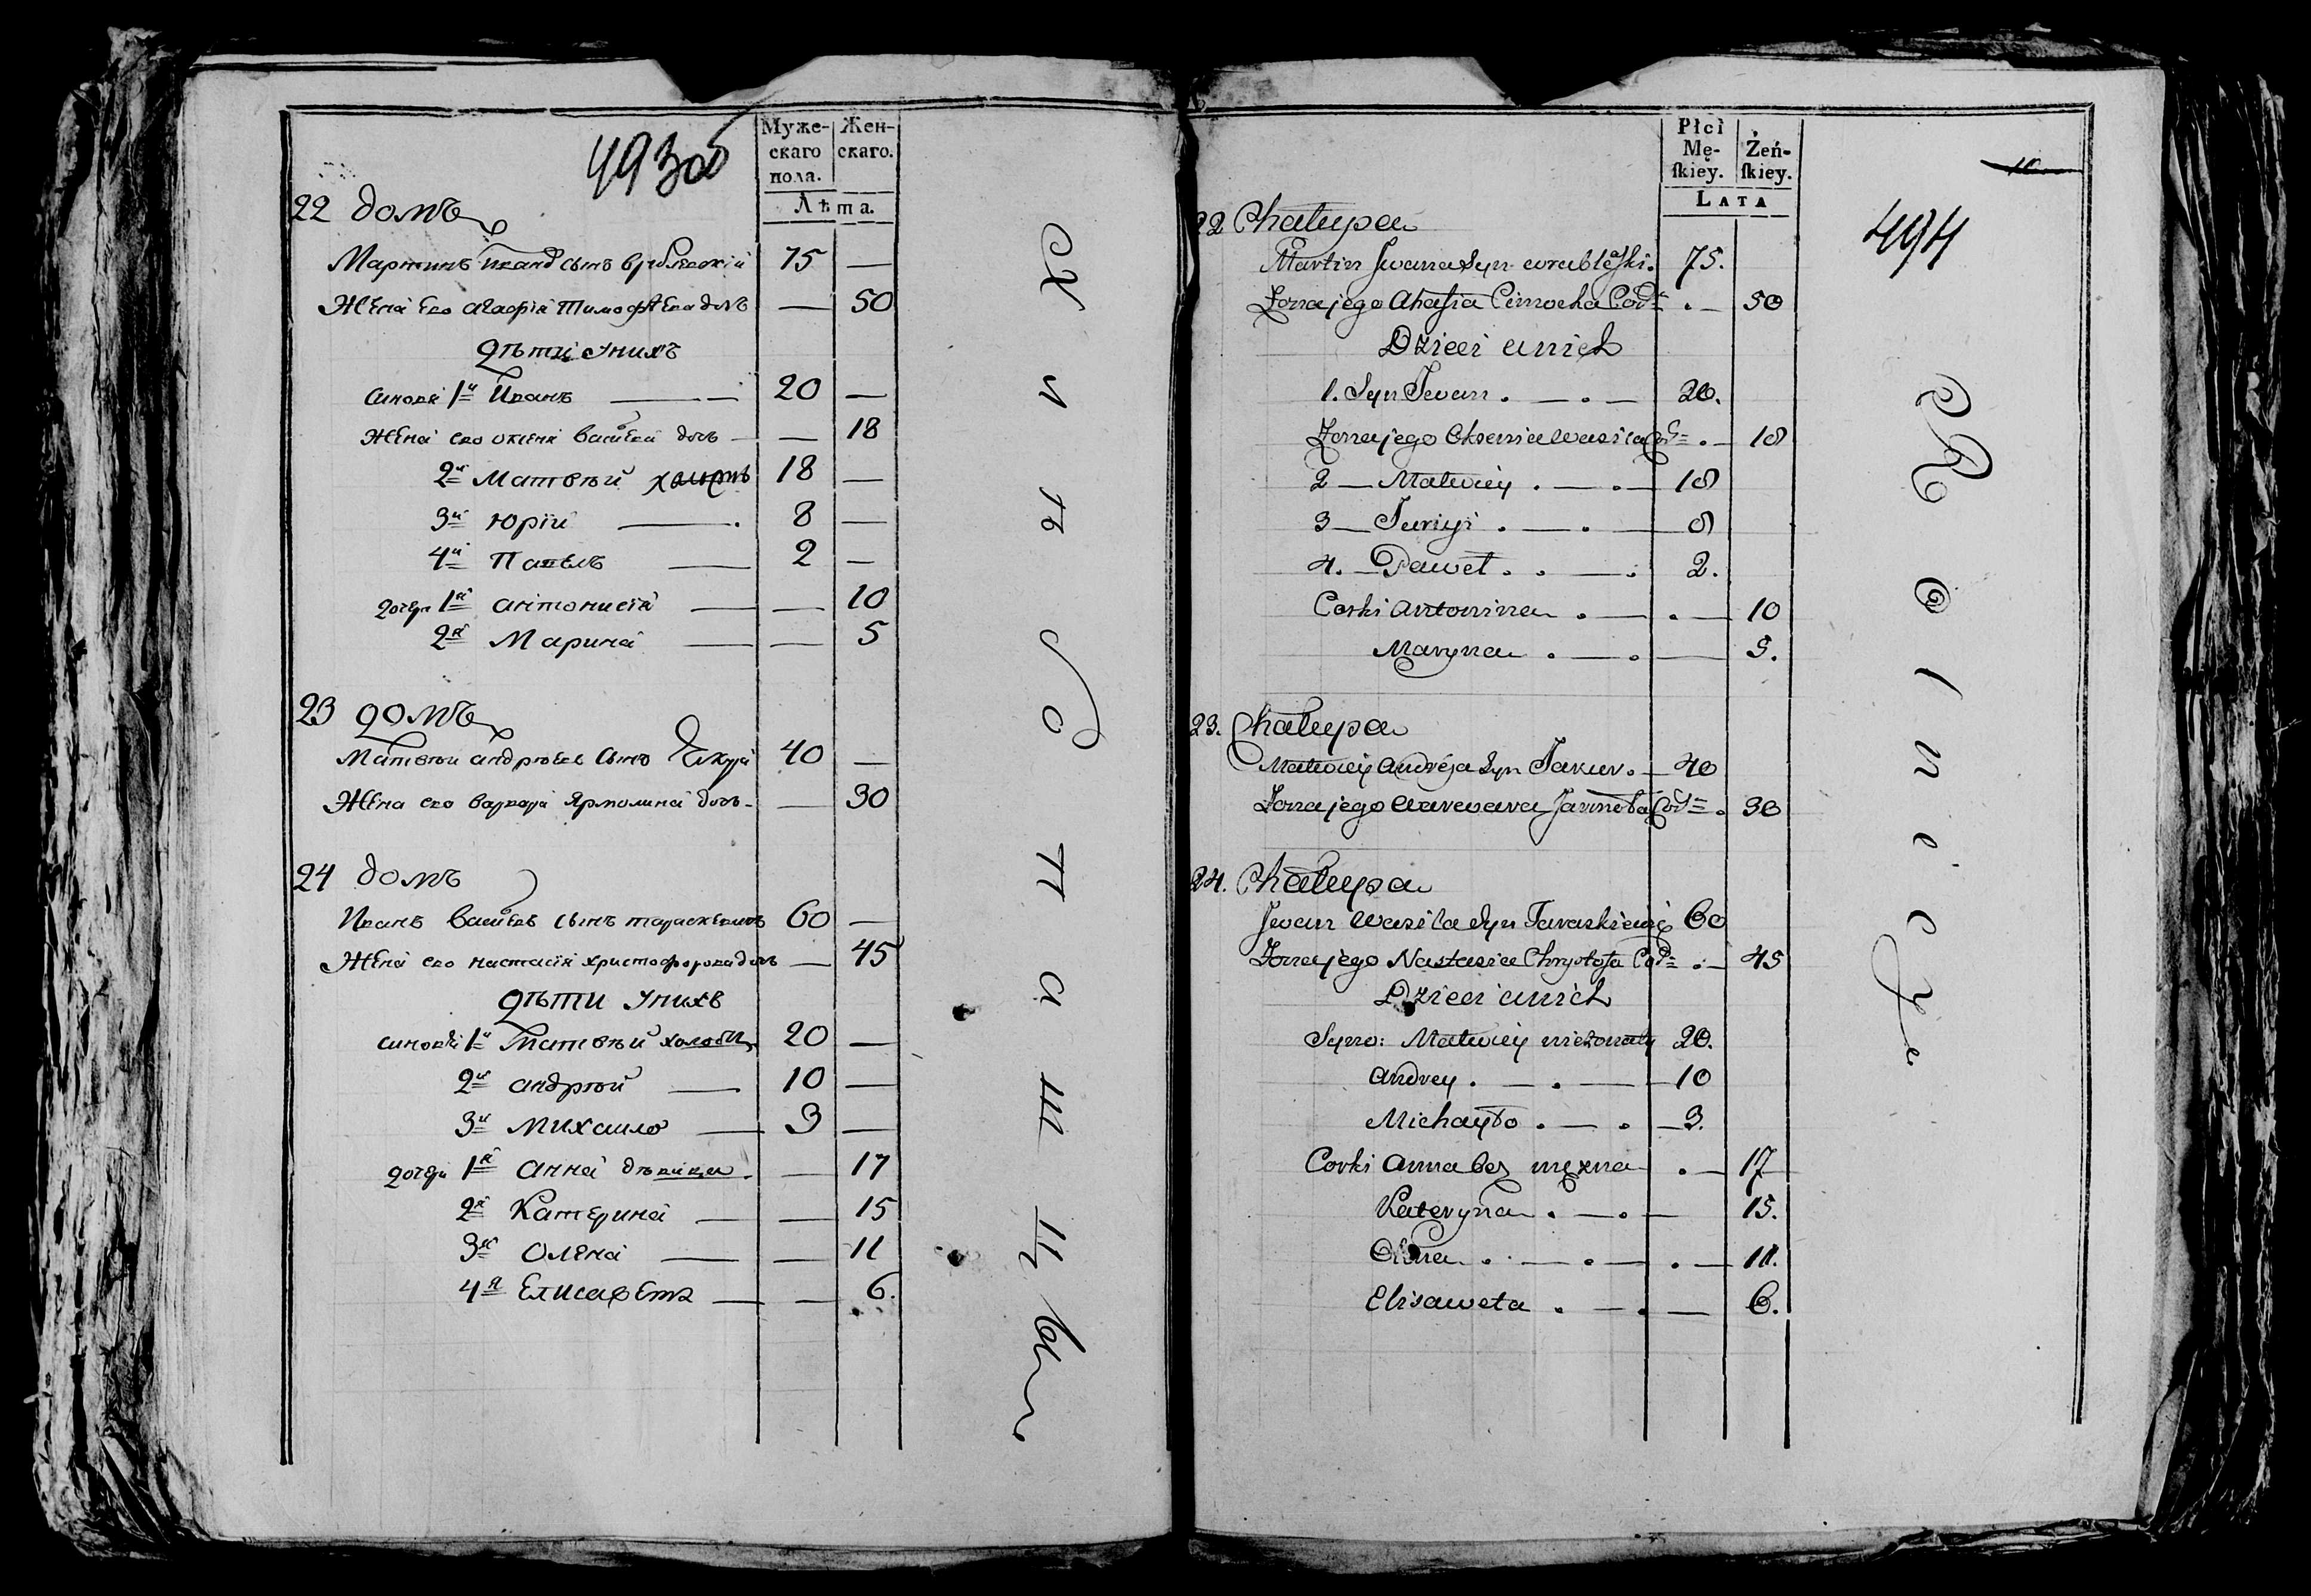 493об
Муже-
скаго
пола.
Жен-
скаго.
Лѣта.
22 домъ
Мартинъ Иванъ сынъ врублевскій 75 —
Жена его агафія Тимофѣева дочь — 50
Дѣти Унихъ
синовя 1й Иванъ — 20 —
Жена его оксеня васылева дочь — — 18
2й Матвѣй 18 —
3й Юрій — 8 —
4й Павелъ — 2 —
дочери 1я антонина — — 10
2я Марина — — 5
23 домъ
Матвѣй андрѣев сынъ 40 —
Жена его варвара Ярмолина дочь — — 30
24 домъ
Иванъ василевъ сынъ тараскевичъ 60 —
Жена его настасія христофорова дочь — 45
Дѣти Унихъ
синовя 1й Матвѣй 20 —
2й андрѣй — 10 —
3й Михаило — 3 —
дочери 1я анна дѣвица — 17
2я Катерина — — 15
3я Олена — — 11
4я Елисавета — — 6.
Х л ѣ б о п а ш ц ы
Płci
Mę-
ſkiey.
Żeń-
ſkiey.
LATA
494
22 Chałupa
Martin Jwana Syn wrublewski. 75.
Zona jego Ahafia Cimocha Cod= . — 50
Dzieci unich
1. Syn Jwan . — . — 20.
Zona jego Oksenia wasila Cod= . — 18
2 — Matwiey . — . — 18
3 — Juriyi . — . — 8
4. — Paweł . . — . 2.
Corki Antonina . — . — 10
Maryna . — . — 5.
23. Chałupa
Matwiey Andreja Syn . — 40
Zona jego warwara Jarmoła Cod= . 30
24. Chałupa
Jwan wasila Syn Taraskiewicz 60
Zona jego Nastasia Chrystofa Cod= . — 45
Dzieci unich
Syno: Matwiey nieżonaty 20.
Andrey . — . — 10
Michayło . — . — 3.
Corki Anna bez mężna . — 17
Kateryna . — . — 15.
Olena . — . — . — 11.
Elisaweta . — . — 6.
R o l n i c y